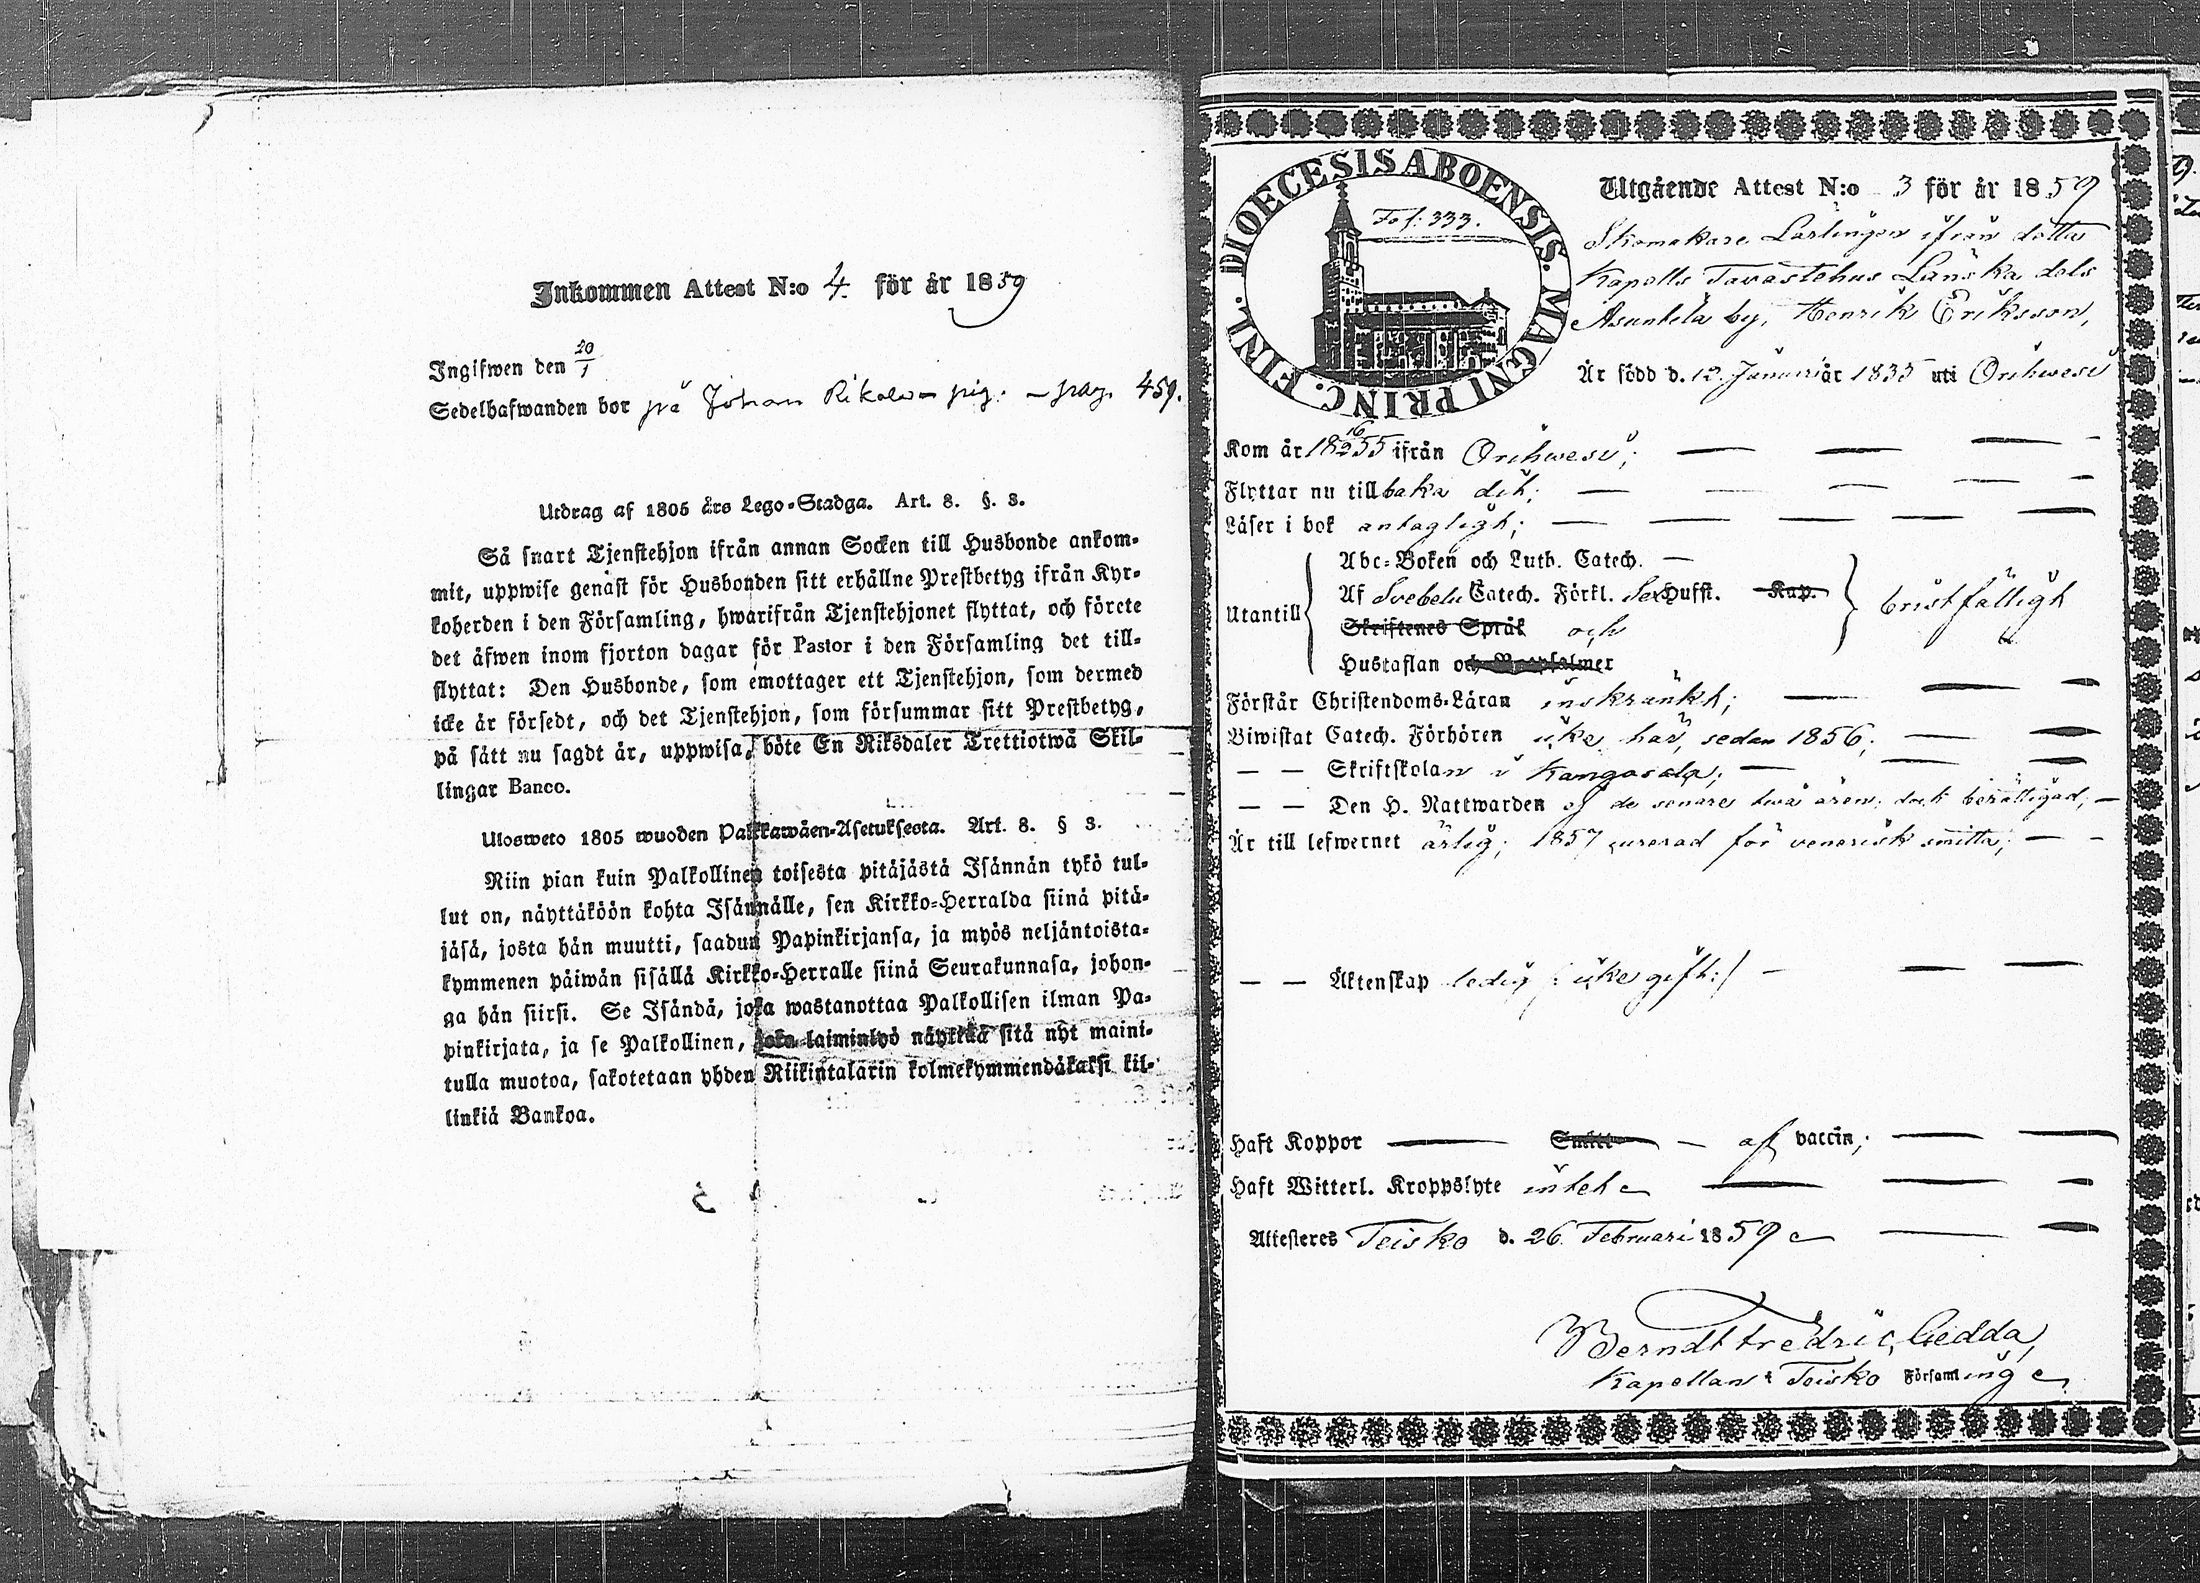 Inkommen Attest N:o 4. för år 1859
Ingifwen den 20/1
Sedelhafwanden bor på Johan Rikala pig: – pag. 459.
Utdrag af 1805 års Lego-Stadga. Art. 8. §. 3.
Så snart Tjenstehjon ifrån annan Socken till Husbonde ankom-
mit, uppwise genast för Husbonden sitt erhållne Prestbetyg ifrån Kyr-
koherden i den Församling, hwarifrån Tjenstehjonet flyttat, och förete
det äfwen inom fjorton dagar för Pastor i den Församling det till-
flyttat: Den Husbonde, som emottager ett Tjenstehjon, som dermed
icke är försedt, och det Tjenstehjon, som försummar sitt Prestbetyg,
på sätt nu sagdt är, uppwisa, böte En Riksdaler Trettiotwå Skil-
lingar Banco.
Ulosweto 1805 wuoden Palkkawäen-Asetuksesta. Art. 8. § 3.
Niin pian kuin Palkollinen toisesta pitäjästä Isännän tykö tul-
lut on, näyttäköön kohta Isännälle, sen Kirkko-Herralda siinä pitä-
jäsä, josta hän muutti, saadun Papinkirjansa, ja myös neljäntoista-
kymmenen päiwän sisällä Kirkko-Herralle siinä Seurakunnasa, johon-
ga hän siirsi. Se Isändä, joka wastanottaa Palkollisen ilman Pa-
pinkirjata, ja se Palkollinen, joka laiminlyö näyttää sitä nyt maini-
tulla muotoa, sakotetaan yhden Riikintalarin kolmekymmendäkaksi kil-
linkiä Bankoa.
DIOECESIS ABOENSIS. MAGNI PRINC. FINL.
Fol: 333.
Utgående Attest N:o 3 för år 1859
Skomakare Lärlingen ifrån detta
Kapells Tavastehus Länska dels
Asuntila by, Henrik Eriksson,
Är född d. 12. Januari år 1835 uti Orihwesi
Kom år 18 16/2 55 ifrån Orihwesi;
Flyttar nu tillbaka dit;
Läser i bok antagligt;
Utantill
Abc-Boken och Luth. Catech. —
Af Svebelii Catech. Förkl. Sex Hufst. Kap.
Skriftenes Språk och
Hustaflan och Botpsalmer
bristfälligt
Förstår Christendoms-Läran inskränkt;
Biwistat Catech. Förhören icke här, sedan 1856;
— — Skriftskolan i Kangasala;
— — Den H. Nattwarden ej de senare twå åren, dock berättigad;
Är till lefwernet ärlig; 1857 curerad för venerisk smitta;
— — Äktenskap ledig /: icke gift:/
Haft Koppor — Smitto — af vaccin;
Haft Witterl. Kroppslyte intet
Attesteres Teisko d. 26. Februari 1859
Berndt Fredric Gedda,
Kapellan i Teisko Församling